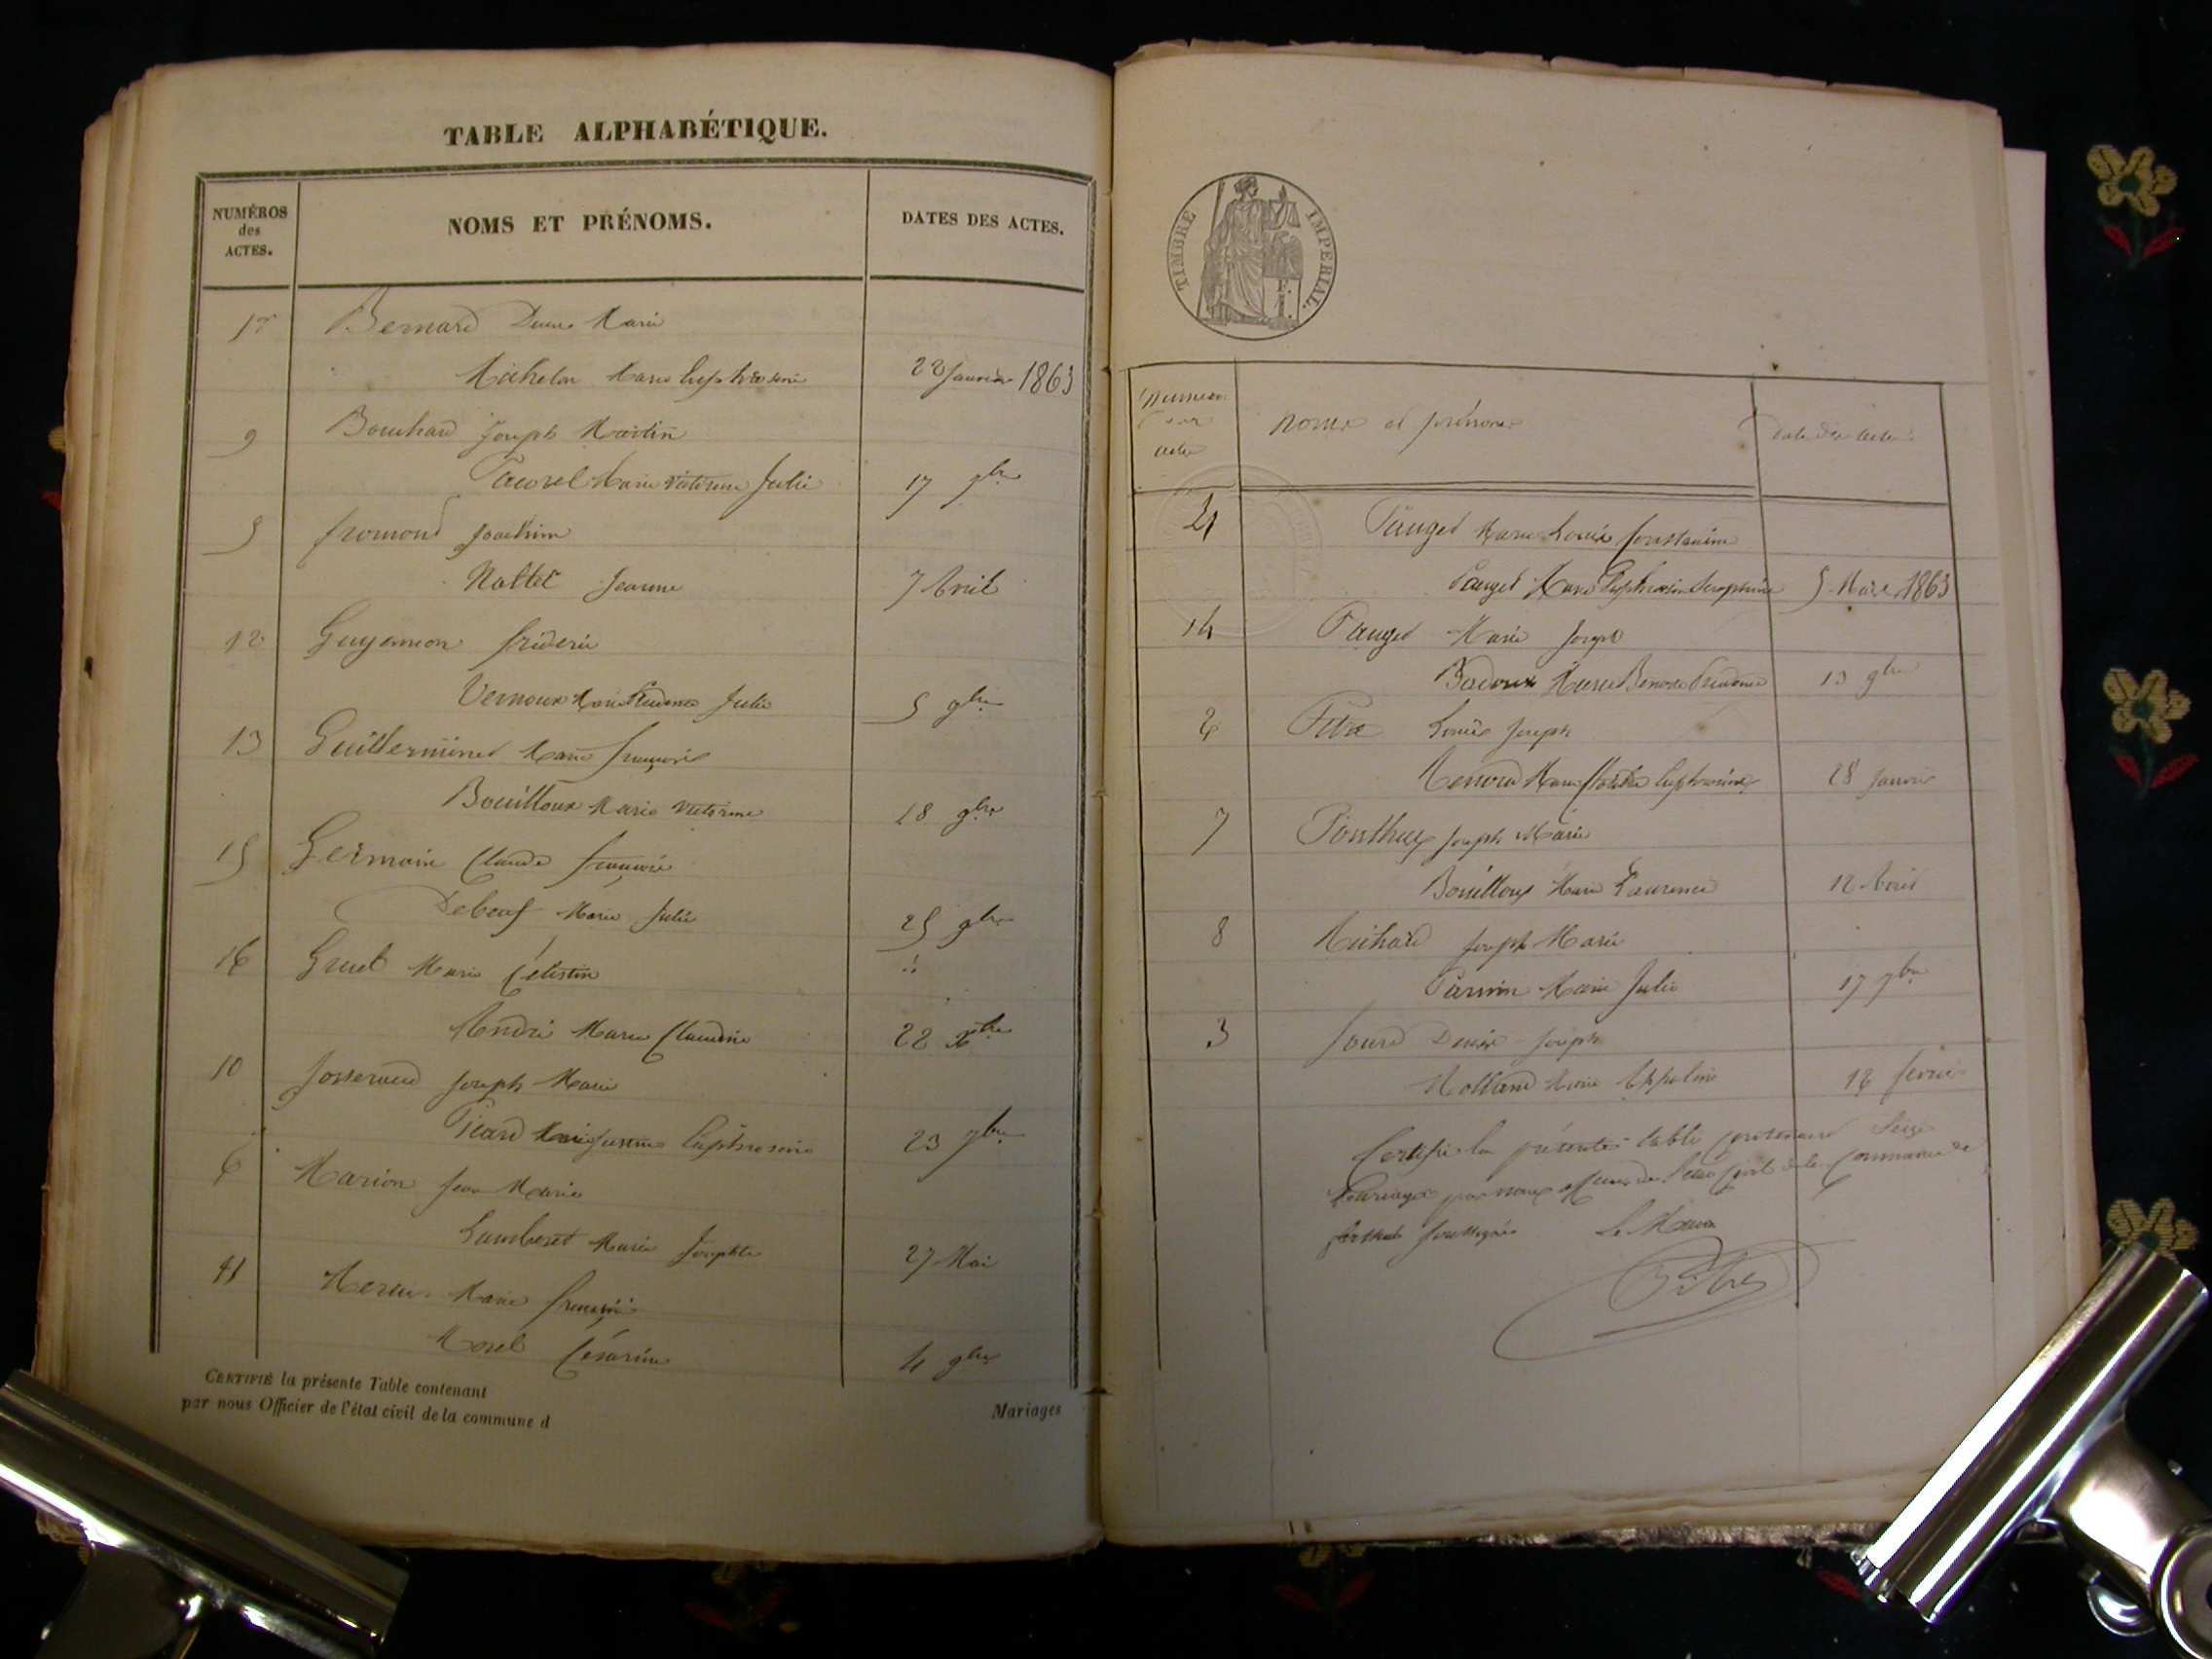 TABLE ALPHABÉTIQUE.
NUMÉROS des ACTES.
NOMS ET PRÉNOMS.
DATES DES ACTES.
Bernard Marie
Michelon Marie 22 Janvier 1863
9 Bouchard Joseph Martin
Marie Victorine Julie 17 7bre
5 fromond Joachim
Nallet Jeanne 7 Avril
12 Guyennon frédéric
Vernoux Marie Prudence Julie 5 9bre
13 Guillerminet Marie françois
Bouilloux Marie Victorine 18 9bre
15 Germain Claude françois
Debeuf Marie Julie 25 9bre
16 Gruet Marie Célestin
André Marie Claudine 22 Xbre
10 Josserand Joseph Marie
Marie Justine Euphrosine 23 7bre
6 Marion Jean Marie
Lamberet Marie Josephte 27 Mai
11 Marie françois
Morel Césarine 4 9bre
CERTIFIÉ la présente Table contenant
par nous Officier de l'état civil de la commune d
Mariages
TIMBRE IMPERIAL.
noms et prénoms
4 Pauget Marie Louis Constantin
Pauget Marie Euphrosine Seraphine 5 Mars 1863
14 Pauget Marie Joseph
Badoux Marie 13 9bre
2 Louis Joseph
Renoud Marie Euphrosine 28 Janvier
7 Ponthus Joseph Marie
Bouilloux Marie Laurence 12 Avril
8 Richard Joseph Marie
Marie Julie 17 7bre
3 Denis Joseph
Rolland Marie 12 février
Certifié la présente table contenant Seize
Mariages par nous officier de l'état Civil de la Commune de
soussigné Le Maire